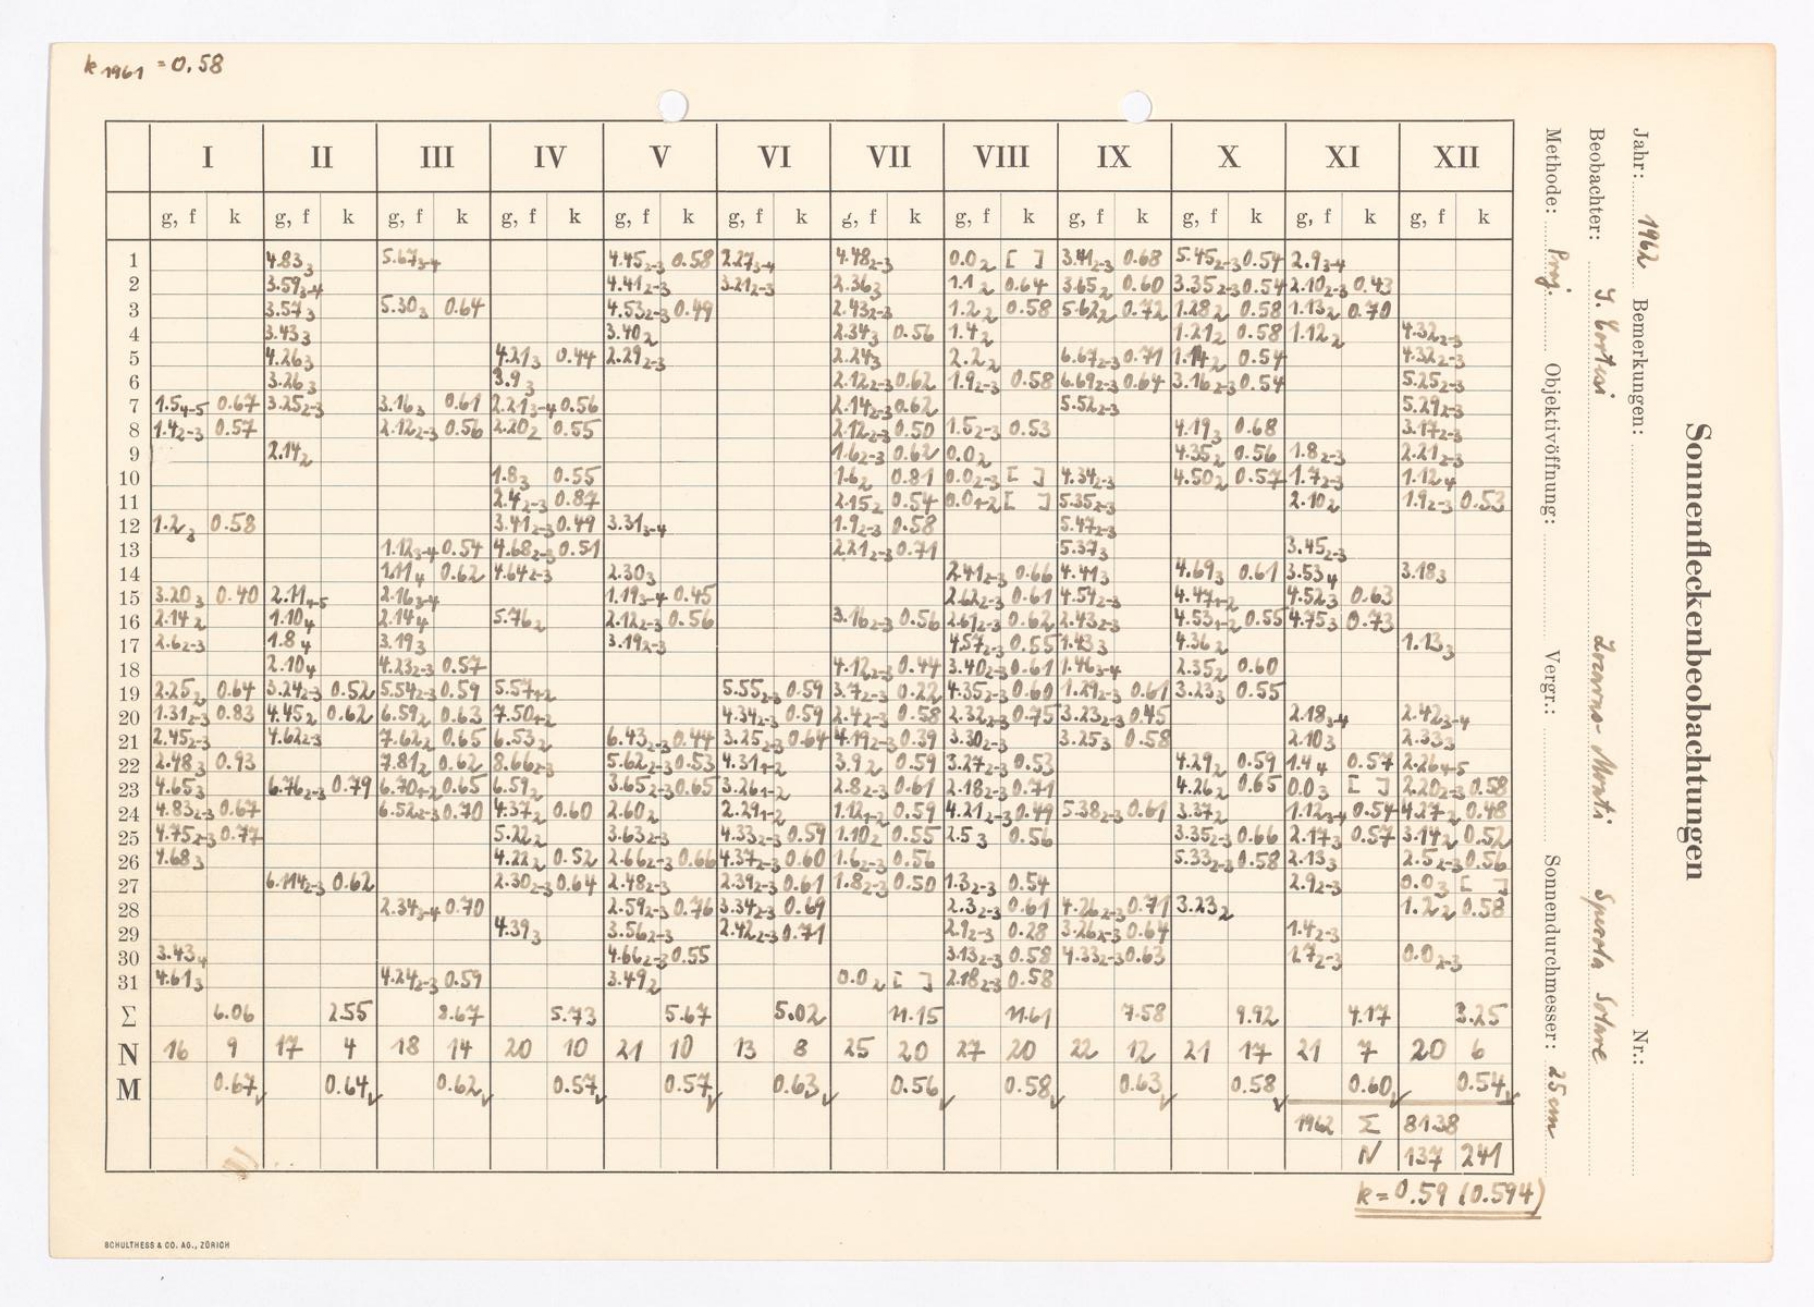 k 1961 = 0.58
I II III IV V VI VII VIII IX X XI XII
g, f k g, f k g, f k g, f k g, f k g, f k g, f k g, f k g, f k g, f k g, f k g, f k
1 4.83 3 5.67 3-4 4.45 2-3 0.58 2.27 3-4 4.48 2-3 0.0 2 [ ] 3.41 2-3 0.68 5.45 2-3 0.54 2.9 3-4
2 3.59 3-4 4.41 2-3 3.21 2-3 2.36 3 1.1 2 0.64 3.65 2 0.60 3.35 2-3 0.54 2.10 2-3 0.43
3 3.57 3 5.30 3 0.64 4.53 2-3 0.49 2.43 2-3 1.2 2 0.58 5.62 2 0.72 1.28 2 0.58 1.13 2 0.70
4 3.43 3 3.40 2 2.34 3 0.56 1.4 2 1.21 2 0.58 1.12 2 4.32 2-3
5 4.26 3 4.21 3 0.44 2.29 2-3 2.24 3 2.2 2 6.67 2-3 0.71 1.14 2 0.54 4.32 2-3
6 3.26 3 3.9 3 2.12 2-3 0.62 1.9 2-3 0.58 6.69 2-3 0.64 3.16 2-3 0.54 5.25 2-3
7 1.5 4-5 0.67 3.25 2-3 3.16 3 0.61 2.21 3-4 0.56 2.14 2-3 0.62 5.52 2-3 5.29 2-3
8 1.4 2-3 0.57 2.12 2-3 0.56 2.20 2 0.55 2.12 2-3 0.50 1.5 2-3 0.53 4.19 3 0.68 3.17 2-3
9 2.14 2 1.6 2-3 0.62 0.0 2 4.35 2 0.56 1.8 2-3 2.21 2-3
10 1.8 3 0.55 1.6 2 0.81 0.0 2-3 [ ] 4.34 2-3 4.50 2 0.57 1.7 2-3 1.12 4
11 2.4 2-3 0.87 2.15 2 0.54 0.0 1-2 [ ] 5.35 2-3 2.10 2 1.9 2-3 0.53
12 1.2 3 0.58 3.41 2-3 0.49 3.31 3-4 1.9 2-3 0.58 5.47 2-3
13 1.12 3-4 0.54 4.68 2-3 0.51 2.21 2-3 0.71 5.37 3 3.45 2-3
14 1.11 4 0.62 4.64 2-3 2.30 3 2.41 2-3 0.66 4.41 3 4.69 3 0.61 3.53 4 3.18 3
15 3.20 3 0.40 2.11 4-5 2.16 3-4 1.19 3-4 0.45 2.62 2-3 0.61 4.54 2-3 4.47 1-2 4.52 3 0.63
16 2.14 2 1.10 4 2.14 4 5.76 2 2.12 2-3 0.56 3.16 2-3 0.56 2.61 2-3 0.62 2.43 2-3 4.53 1-2 0.55 4.75 3 0.73
17 2.6 2-3 1.8 4 3.19 3 3.19 2-3 4.57 2-3 0.55 1.43 3 4.36 2 1.13 3
18 2.10 4 4.23 2-3 0.57 4.12 2-3 0.44 3.40 2-3 0.61 1.46 3-4 2.35 2 0.60
19 2.25 2 0.64 3.24 2-3 0.52 5.54 2-3 0.59 5.57 1-2 5.55 2-3 0.59 3.7 2-3 0.22 4.35 2-3 0.60 1.29 2-3 0.61 3.23 3 0.55
20 1.31 2-3 0.83 4.45 2 0.62 6.59 2 0.63 7.50 1-2 4.34 2-3 0.59 2.4 2-3 0.58 2.32 2-3 0.75 3.23 2-3 0.45 2.18 3-4 2.42 3-4
21 2.45 2-3 4.62 2-3 7.62 2 0.65 6.53 2 6.43 2-3 0.44 3.25 2-3 0.64 4.19 2-3 0.39 3.30 2-3 3.25 3 0.58 2.10 3 2.33 3
22 2.48 3 0.93 7.81 2 0.62 8.66 2-3 5.62 2-3 0.53 4.31 1-2 3.9 2 0.59 3.27 2-3 0.53 4.29 2 0.59 1.4 4 0.57 2.26 4-5
23 4.65 3 6.76 2-3 0.79 6.70 1-2 0.65 6.59 2 3.65 2-3 0.65 3.26 1-2 2.8 2-3 0.61 2.18 2-3 0.71 4.26 2 0.65 0.0 3 [ ] 2.20 2-3 0.58
24 4.83 2-3 0.67 6.52 2-3 0.70 4.37 2 0.60 2.60 2 2.29 1-2 1.12 1-2 0.59 4.21 2-3 0.49 5.38 2-3 0.61 3.37 2 1.12 3-4 0.54 4.27 2 0.48
25 4.75 2-3 0.77 5.22 2 3.63 2-3 4.33 2-3 0.59 1.10 2 0.55 2.5 3 0.56 3.35 2-3 0.66 2.17 3 0.57 3.14 2 0.52
26 4.68 3 4.22 2 0.52 2.66 2-3 0.66 4.37 2-3 0.60 1.6 2-3 0.56 5.33 2-3 0.58 2.13 3 2.5 2-3 0.56
27 6.114 2-3 0.62 2.30 2-3 0.64 2.48 2-3 2.39 2-3 0.61 1.8 2-3 0.50 1.3 2-3 0.54 2.9 2-3 0.0 3 [ ]
28 2.34 3-4 0.70 2.59 2-3 0.76 3.34 2-3 0.69 2.3 2-3 0.61 4.26 2-3 0.71 3.23 2 1.2 2 0.58
29 4.39 3 3.56 2-3 2.42 2-3 0.71 2.9 2-3 0.28 3.26 2-3 0.64 1.4 2-3
30 3.43 4 4.66 2-3 0.55 3.13 2-3 0.58 4.33 2-3 0.63 1.7 2-3 0.0 2-3
31 4.61 3 4.24 2-3 0.59 3.49 2 0.0 2 [ ] 2.18 2-3 0.58
Σ 6.06 2.55 8.67 5.73 5.67 5.02 11.15 11.61 7.58 9.92 4.17 3.25
N 16 9 17 4 18 14 20 10 21 10 13 8 25 20 27 20 22 12 21 17 21 7 20 6
M 0.67 0.64 0.62 0.57 0.57 0.63 0.56 0.58 0.63 0.58 0.60 0.54
1962 Σ 8138
N 137 241
k = 0.59 (0.594)
SCHULTHESS & CO. AG., ZÜRICH
Sonnenfleckenbeobachtungen
Jahr: 1962 Bemerkungen: Nr.:
Beobachter: S. Cortesi Locarno-Monti Specola Solare
Methode: Proj. Objektivöffnung: Vergr.: Sonnendurchmesser: 25 cm